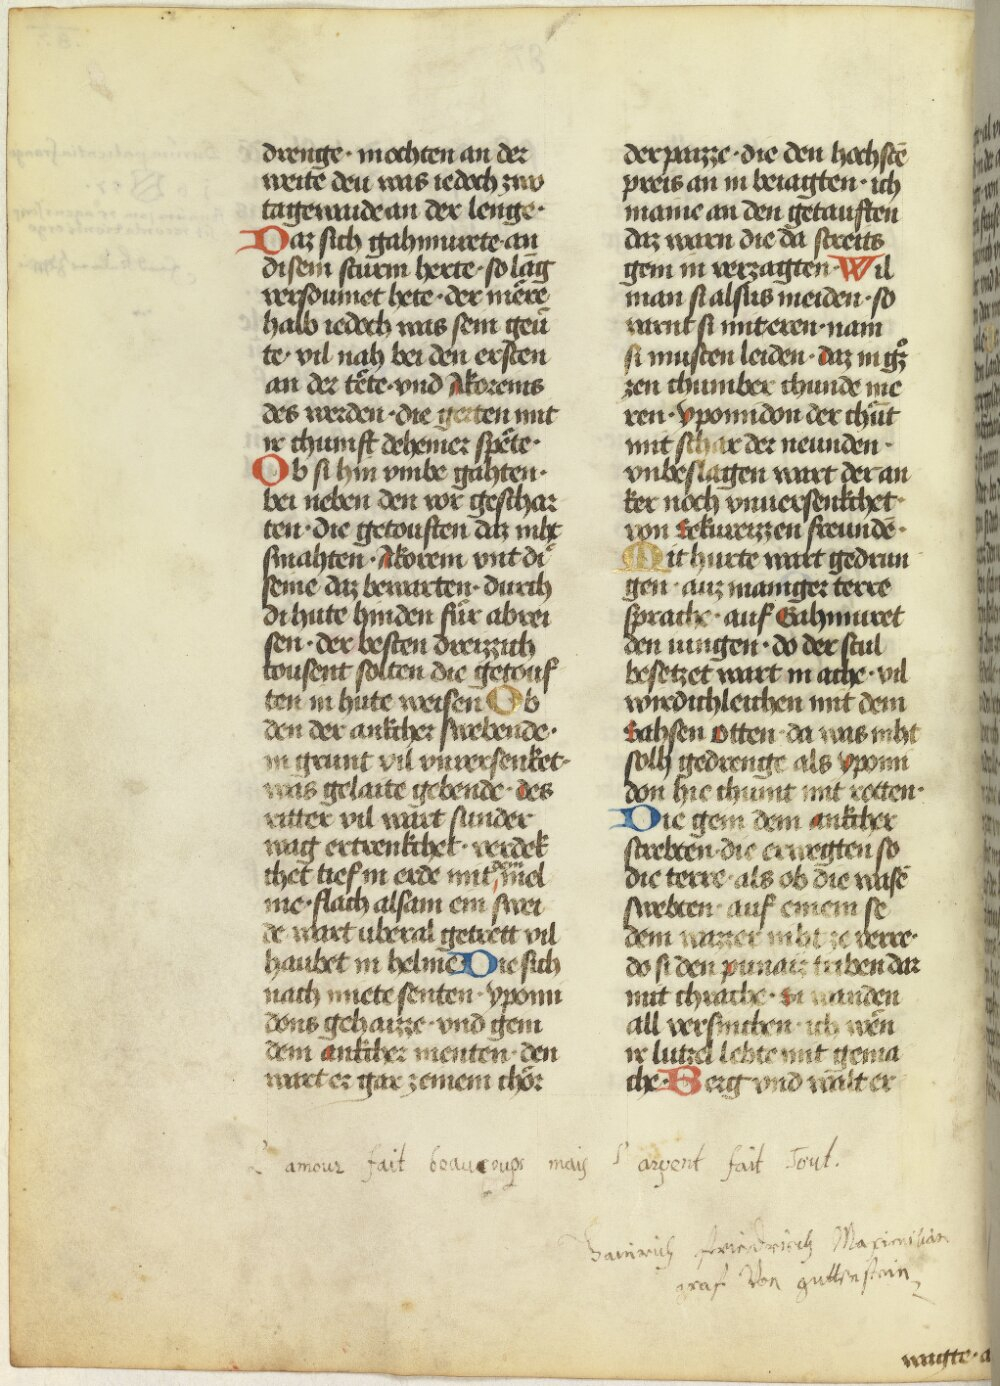 drenge · mochten an der
weite den was iedoch zwo
tagewaide an der lenge ·
Daz sich gahmurete · an
disem sturm herte · so lāg
versoumet hete · der mēre
halb iedoch was sein geū
te · vil nah bei den ersten
an der tēte · vnd Akoreins
des werden · die gerten mit
ir chumft deheiner spēte ·
Ob si hin vmbe gahten ·
bei neben den vor geschar
ten · die getouften daz niht
smahten · Akorein vnt di
seine daz bewarten · durch
di hute hinden für abrei
sen · der besten dreizzich
tousent solten die getouf
ten in hute weisen Ob
den der ankcher swebende ·
in grunt vil vnversenket ·
was gelaite gebende · des
ritter vil wart sunder
wag ertrenkchet · verdek
chet tief in erde mit dem mel
me · flach alsam ein swei
de wart uberal getrett vil
haubet in helme Die sich
nach miete senten · yponi
dons gehaizze · vnd gein
dem ankcher menten · den
wart er gar zeinem chōr
der paizze · die den hochstē
preis an in beiagten · ich
maine an den getauften
daz warn die da streits
gein in verzagten · Wil
man si alsus meiden · so
varnt si mit eren · nain
si musten leiden · daz in gro
zen chumber chunde me
ren · yponidon der chūt
mit schar der neunden ·
vnbeslagen wart der an
ker noch vnuersenkchet ·
von Sekureizzen freundē ·
Mit hurte wart gedrun
gen · auz maniger terre
sprache · auf Gahmuret
den iungen · do der stul
besetzet wart in ache · vil
wirdichleichen mit dem
Sahsen Otten · da was niht
solh gedrenge als yponi
don hie chumt mit rotten ·
Die gein dem ankcher
strebten · die erwegten so
die terre · als ob die wasē
swebten · auf einem se
dem wazzer niht ze verre ·
do si den punaiz triben dar
mit chrache · si wanden
all versinchen · ich wēn
ir lutzel lebte mit gema
che · Berg vnd wālt er
L' amour fait beaucoups mais l' argent fait Tout.
Hainrich friedrich Maximilian
graf Von guttenstein
wagte · a